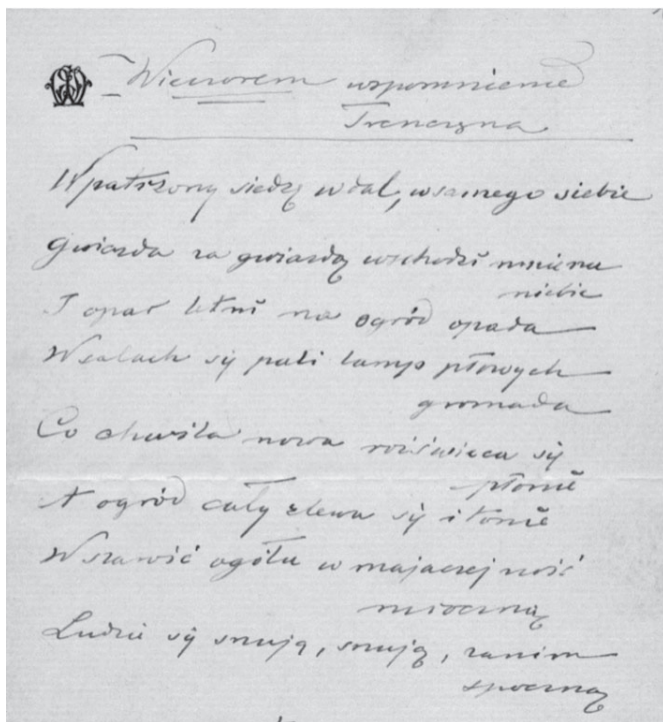 Wieczorem wspomnienie
Trenczyna
Wpatrzony siedzę w dal, w samego siebie
Gwiazda za gwiazdą wschodzi mnie na
niebie
I opar letni na ogród opada
W salach się pali lamp płowych
gromada
Co chwila nowa rozświeca się
płonie
A ogród cały zlewa się i tonie
W szarość ogółu w
mroczną
Ludzie się snują, snują, zanim
spoczną